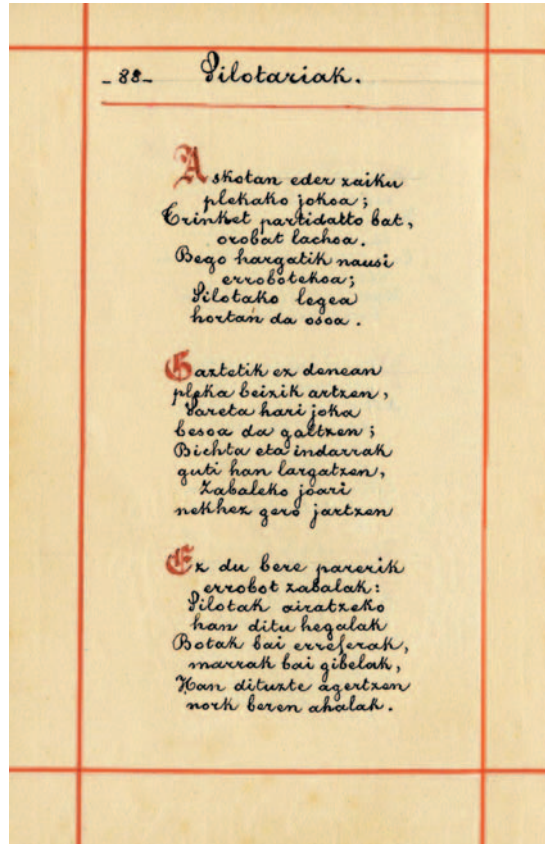 -88- Pilotariak.
Askotan eder zaiku
plekako jokoa;
Trinket partidatto bat,
orobat lachoa.
Bego hargatik nausi
errobotekoa;
Pilotako legea
hortan da osoa.
Gaztetik ez denean
pleka beizik artzen,
Pareta hari joka
besoa da galtzen;
Bichta eta indarrak
guti han largatzen,
Zabaleko joari
nekhez gero jartzen
Ez du bere parerik
errobot zabalak:
Pilotak airatzeko
han ditu hegalak
Botak bai erreferak,
marrak bai gibelak,
Han dituzte agertzen
nork beren ahalak.